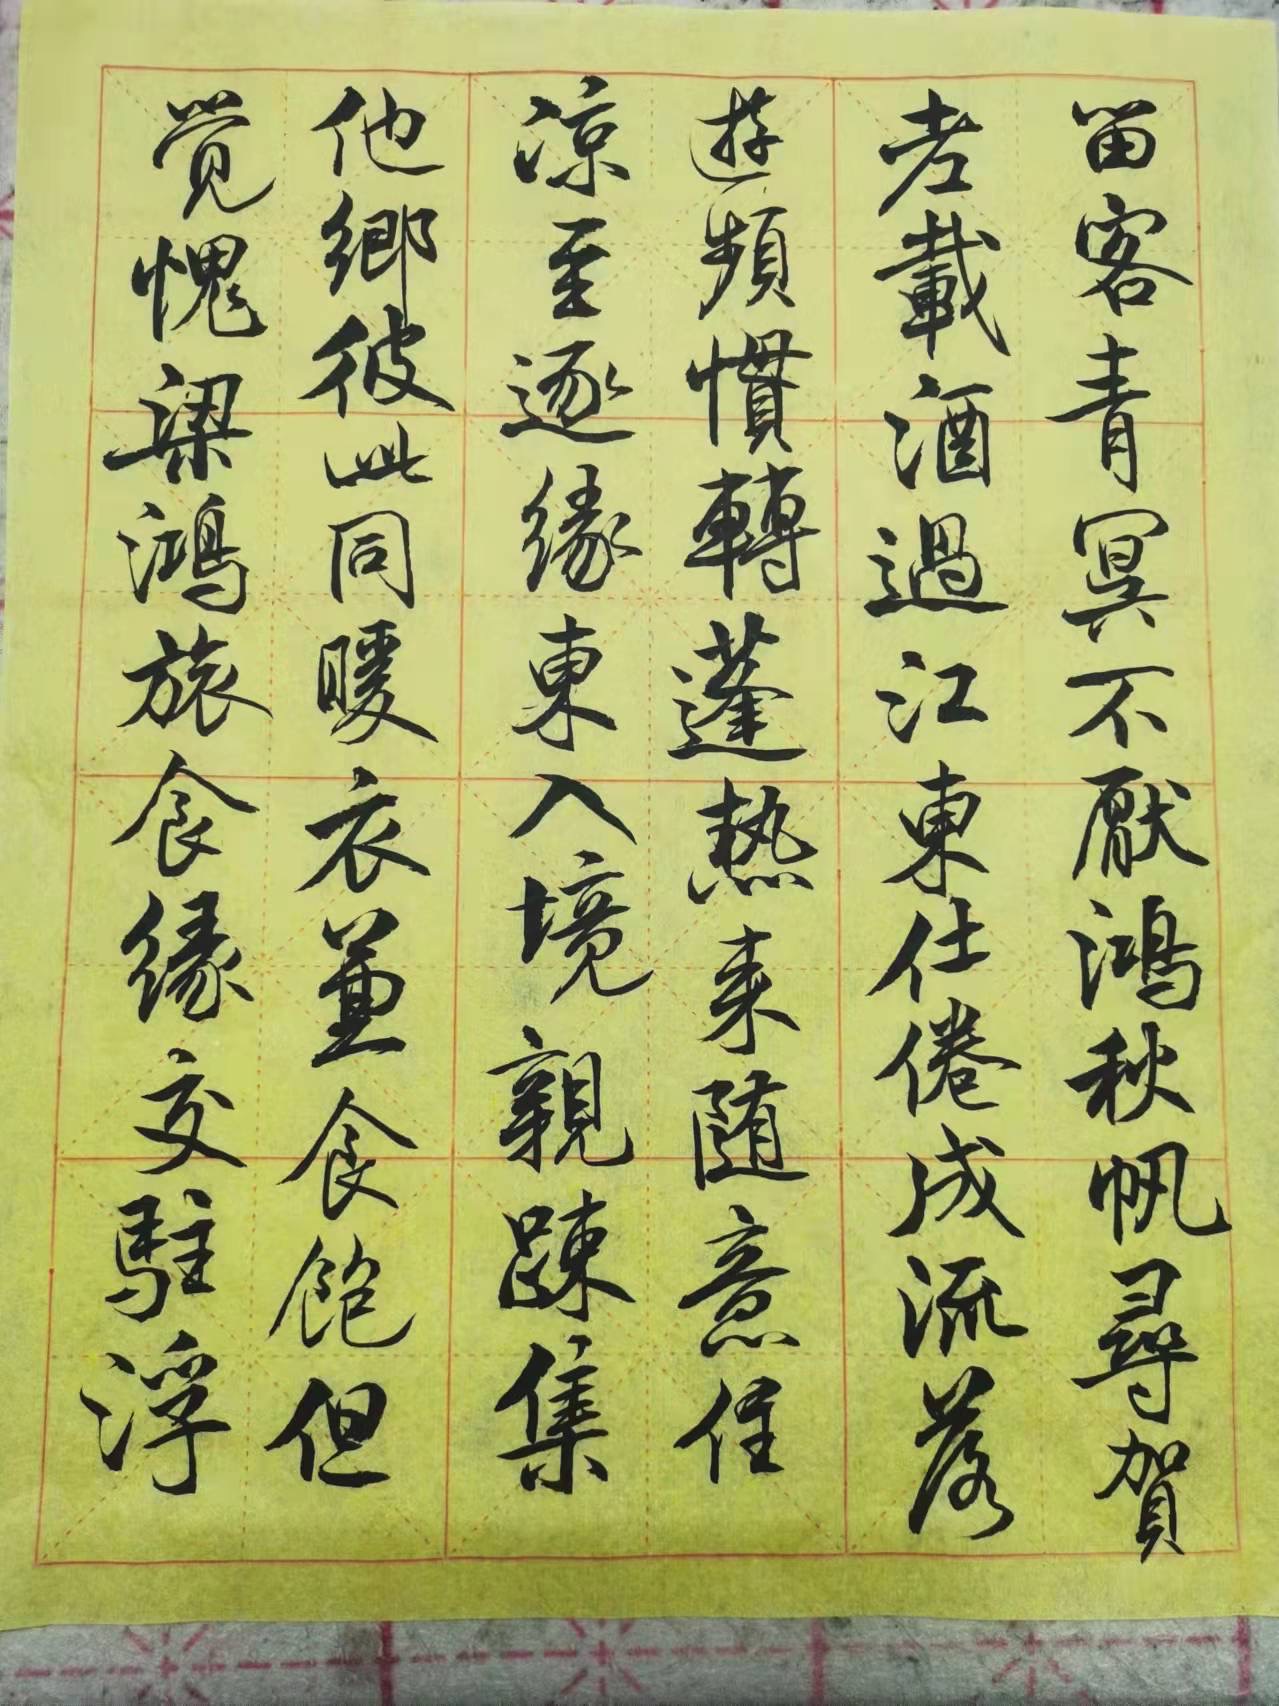 留客青冥不厭鴻秋帆尋賀
老載酒過江東仕倦成流落
遊頻慣轉蓬熱来随意住
涼至逐緣東入境親踈集
他鄉彼此同暖衣兼食飽但
覺愧梁鴻旅食緣交駐浮